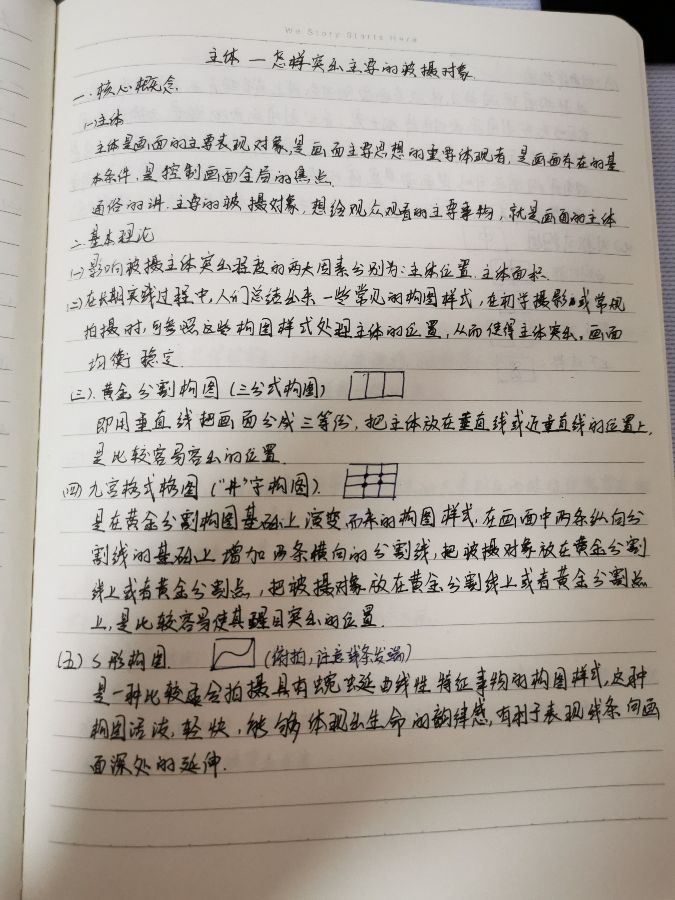 We Story Starts Here
主体 — 怎样突出主要的被摄对象.
一.核心概念.
(一)主体
主体是画面的主要表现对象,是画面主要思想的重要体现者,是画面存在的基
本条件,是控制画面全局的焦点.
通俗的讲.主要的被摄对象,想给观众观看的主要事物,就是画面的主体
二.基本理论
(一)影响被摄主体突出程度的两大因素分别为:主体位置.主体面积.
(二)在长期实践过程中,人们总结出来一些常见的构图样式,在初学摄影或常规
拍摄时,可参照这些构图样式处理主体的位置,从而使得主体突出,画面
均衡稳定.
(三).黄金分割构图(三分式构图)
即用垂直线把画面分成三等份,把主体放在垂直线或近垂直线的位置上,
是比较容易突出的位置.
(四)九宫格式格图("井"字构图).
是在黄金分割构图基础上演变而来的构图样式,在画面中两条纵向分
割线的基础上增加两条横向的分割线,把被摄对象放在黄金分割
线上或者黄金分割点,把被摄对象放在黄金分割线上或者黄金分割点
上,是比较容易使其醒目突出的位置.
(五)S形构图. (俯拍,注意线条发端)
是一种比较适合拍摄具有蜿蜒曲线性特征事物的构图样式,这种
构图活泼,轻快,能够体现出生命的韵律感,有利于表现线条向画
面深处的延伸.